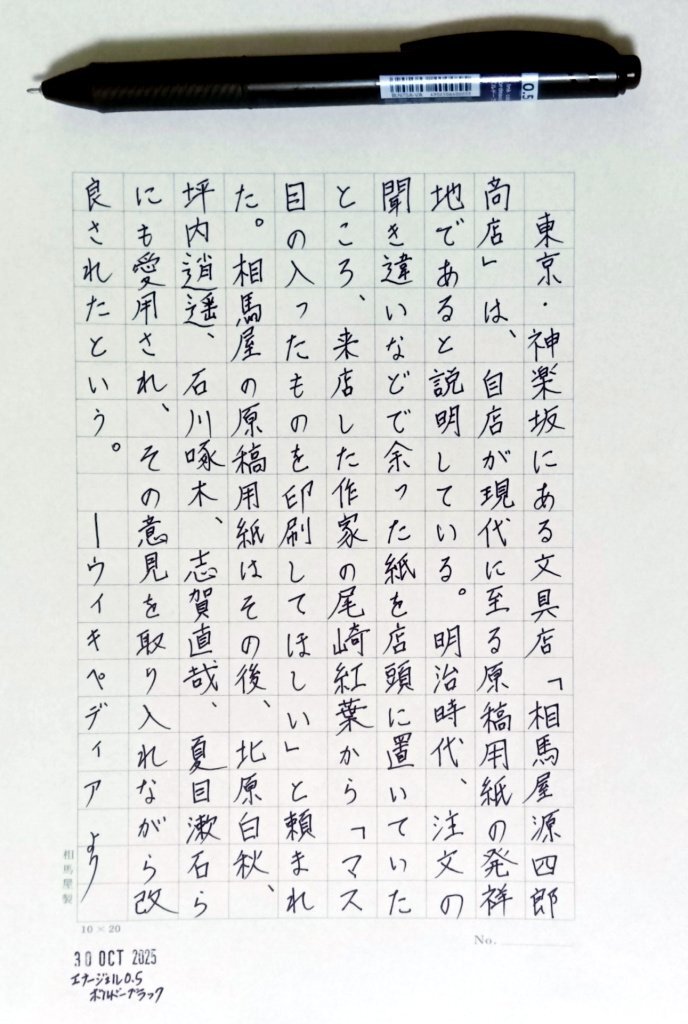 東京・神楽坂にある文具店「相馬屋源四郎
商店」は、自店が現代に至る原稿用紙の発祥
地であると説明している。明治時代、注文の
聞き違いなどで余った紙を店頭に置いていた
ところ、来店した作家の尾崎紅葉から「マス
目の入ったものを印刷してほしい」と頼まれ
た。相馬屋の原稿用紙はその後、北原白秋、
坪内逍遥、石川啄木、志賀直哉、夏目漱石ら
にも愛用され、その意見を取り入れながら改
良されたという。 ーウィキペディアより
相馬屋製
10×20
No.
30 OCT 2025
エナージェル0.5
ボルドーブラック
0.5